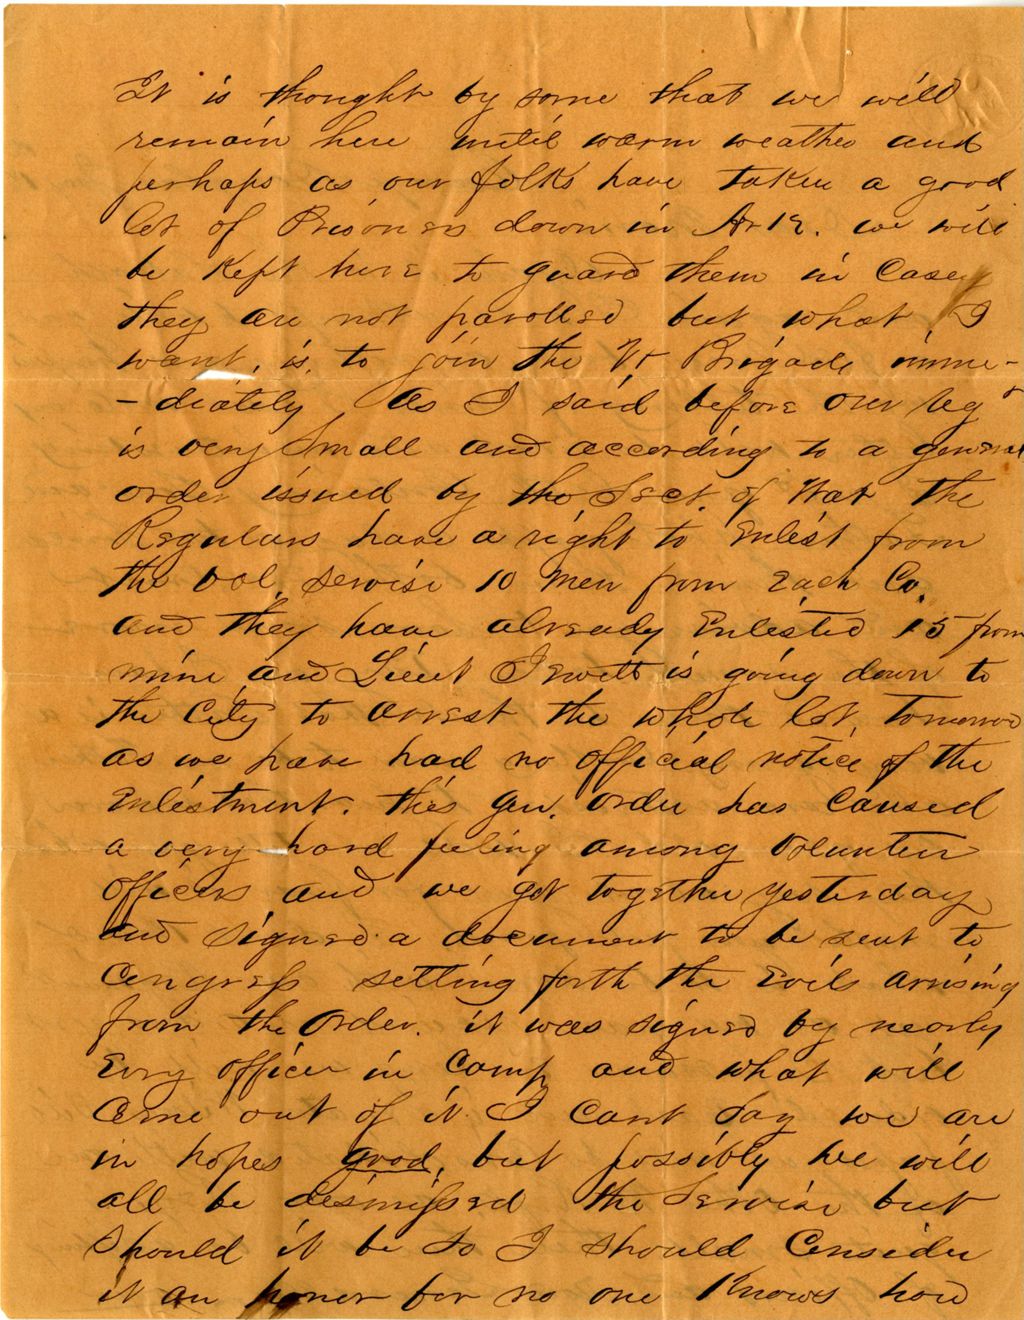 It is thought by some that we will
remain here until warm weather and
perhaps as our folks have taken a good
lot of Prisoners down in Ark. we will
be Kept here to guard them in Case
they are not parolled but what I
want, is, to join the Vt Brigade imme-
-diately, as I said before our reg
is very Small and according to a general
order issued by the Sect. of War the
Regulars have a right to Enlist from
the vol. servise 10 men from Each Co.
and they have already Enlisted 15 from
mine and Lieut Jewett is going down to
the City to arrest the whole lot tomorrow
as we have had no official notice of the
Enlistment. this Gen. order has caused
a very hard feeling among Volunteer
officers and we got together yesterday
and signed a document to be sent to
Congress setting forth the Evils arrising
from the Order. it was signed by nearly
Evry officer in Camp and what will
come out of it I cant say we are
in hopes good, but possibly we will
all be desmissed the Servise but
Should it be so I should Consider
it an honor for no one Knows how